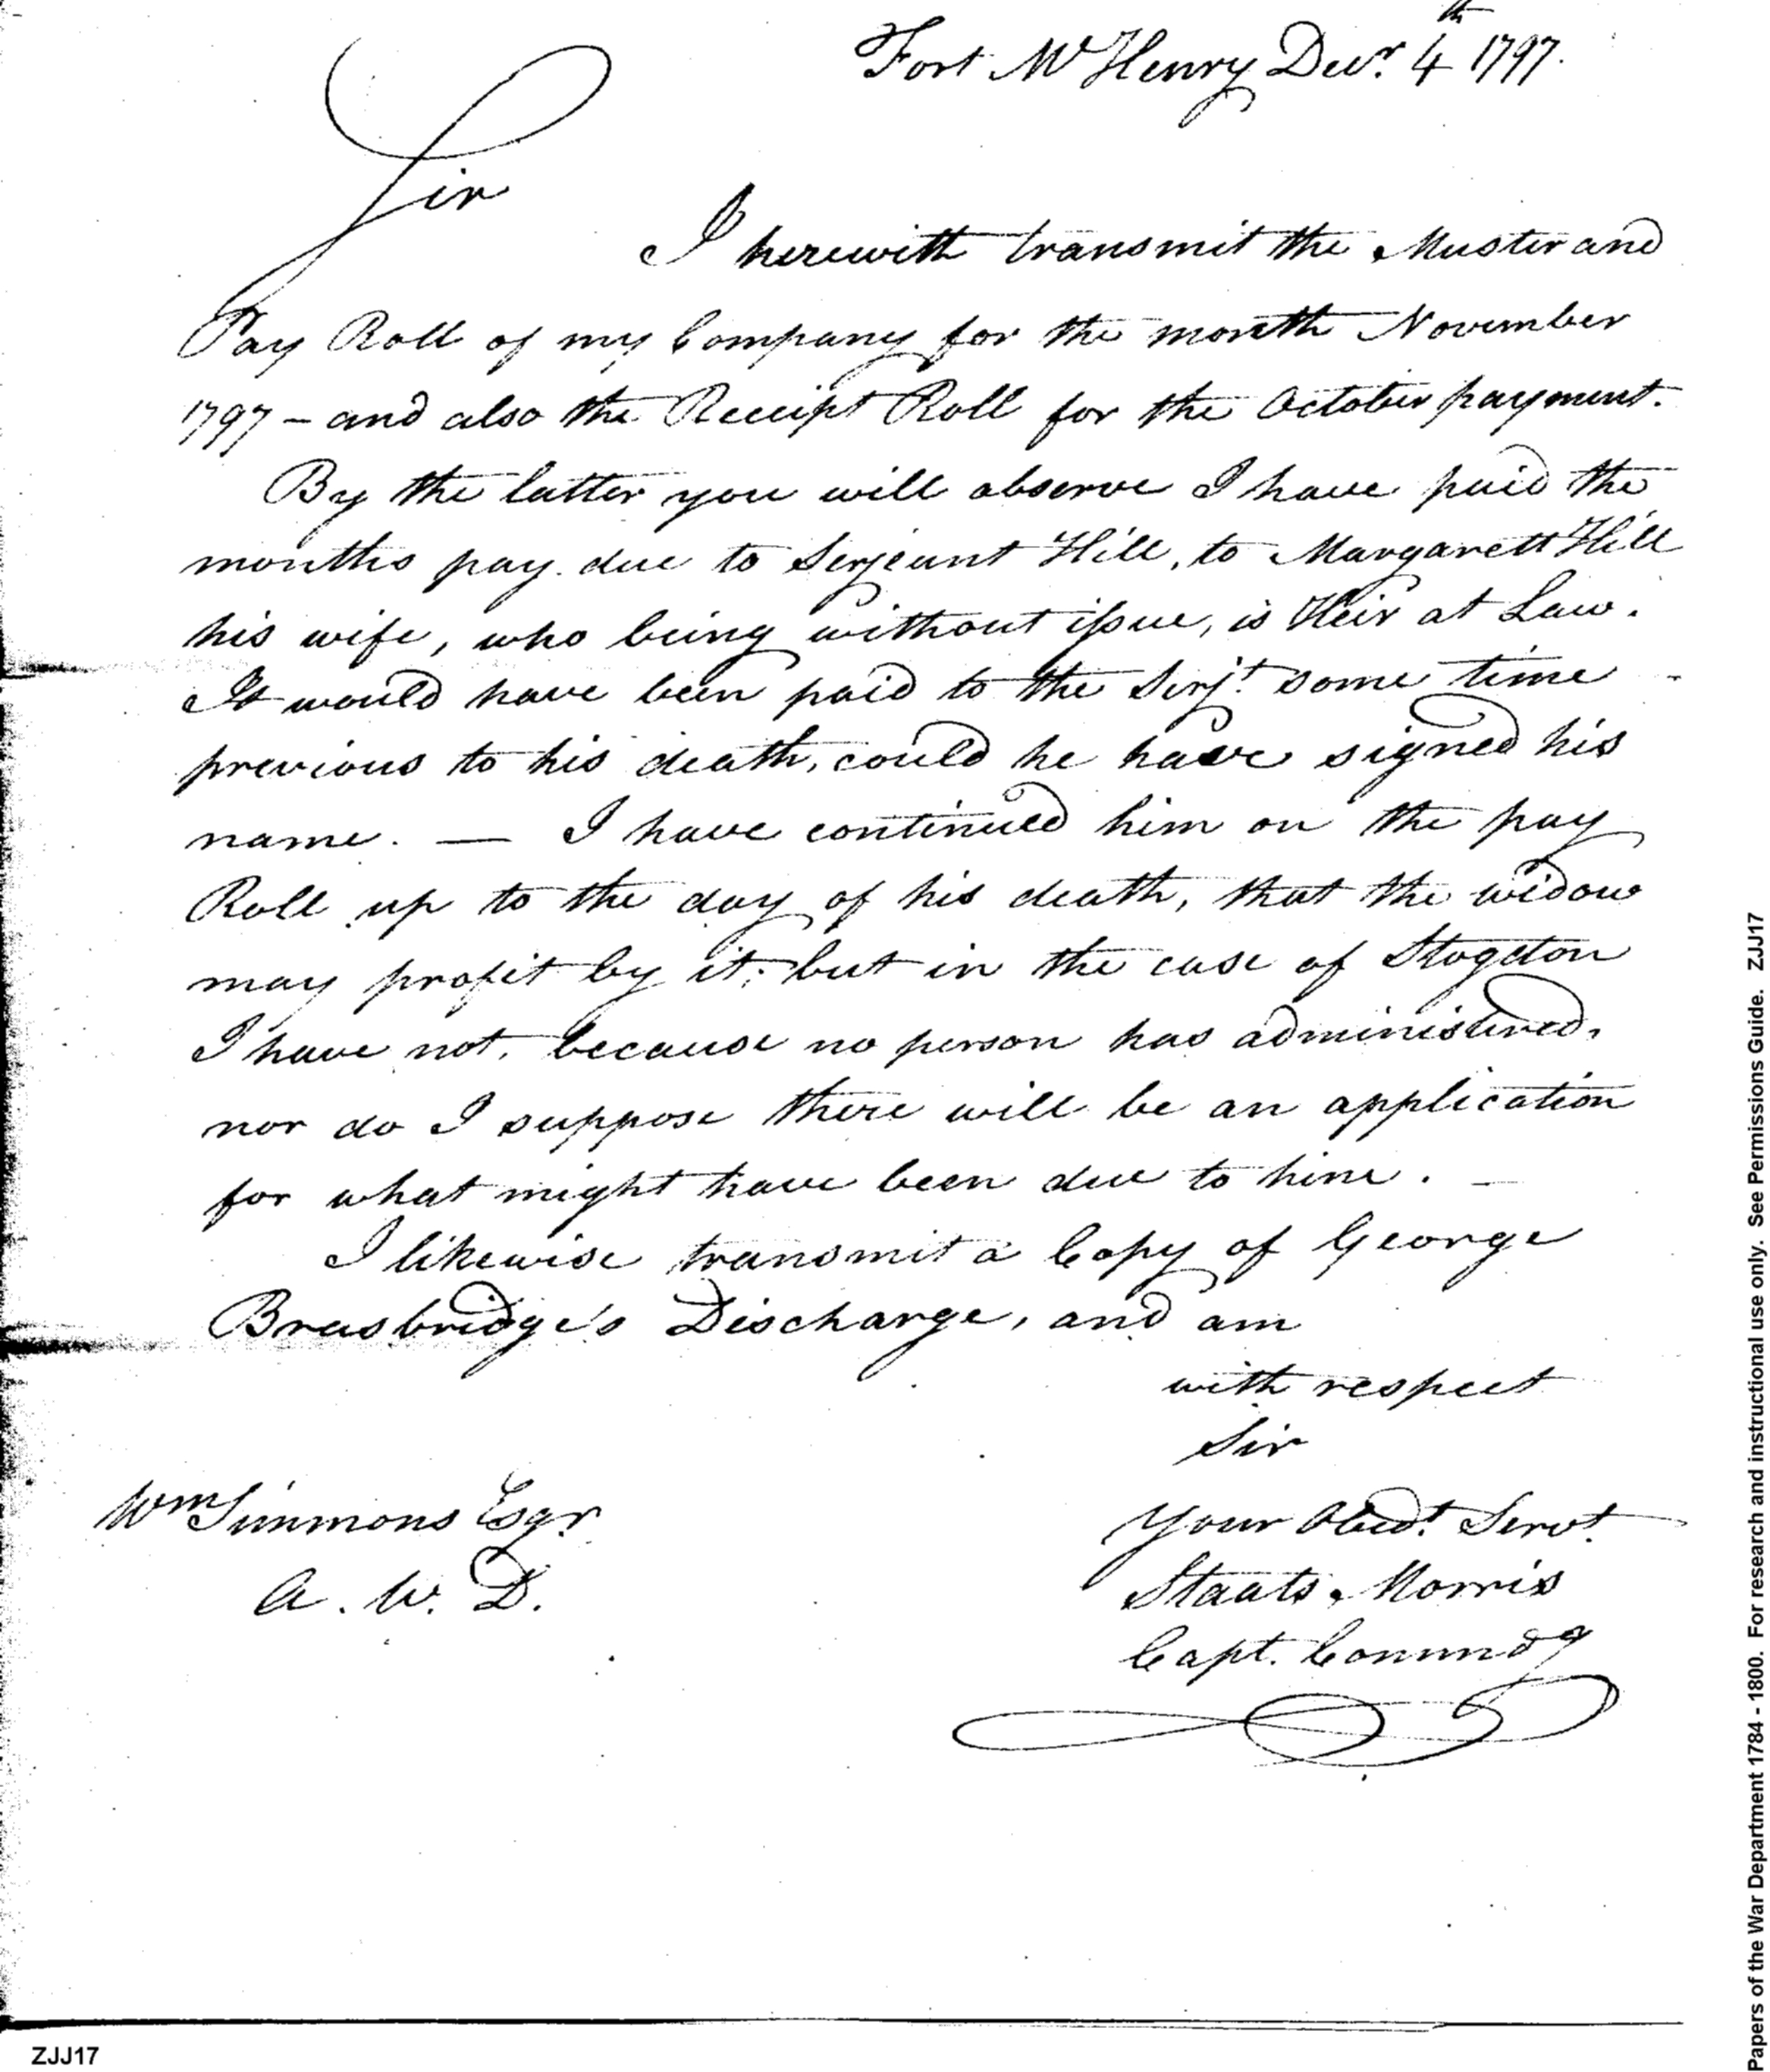 Fort McHenry Decr. 4th 1797.
Sir
I herewith transmit the Muster and
Pay Roll of my Company for the month November
1797 – and also the Receipt Roll for the October payment.
By the latter you will observe I have paid the
months pay due to Serjeant Hill, to Margarett Hill
his wife, who being without issue, is Heir at Law.
It would have been paid to the Serjt. some time
previous to his death, could he have signed his
name. — I have continued him on the pay
Roll up to the day of his death, that the widow
may profit by it; but in the case of Stogdon
I have not, because no person has administered,
nor do I suppose there will be an application
for what might have been due to him. —
I likewise transmit a Copy of George
Brasbridge's Discharge, and am
with respect
Sir
Your Obedt. Servt.
Staats Morris
Capt. Commdg
Wm Simmons Esqr.
A. W. D.
ZJJ17
Papers of the War Department 1784 - 1800. For research and instructional use only. See Permissions Guide. ZJJ17